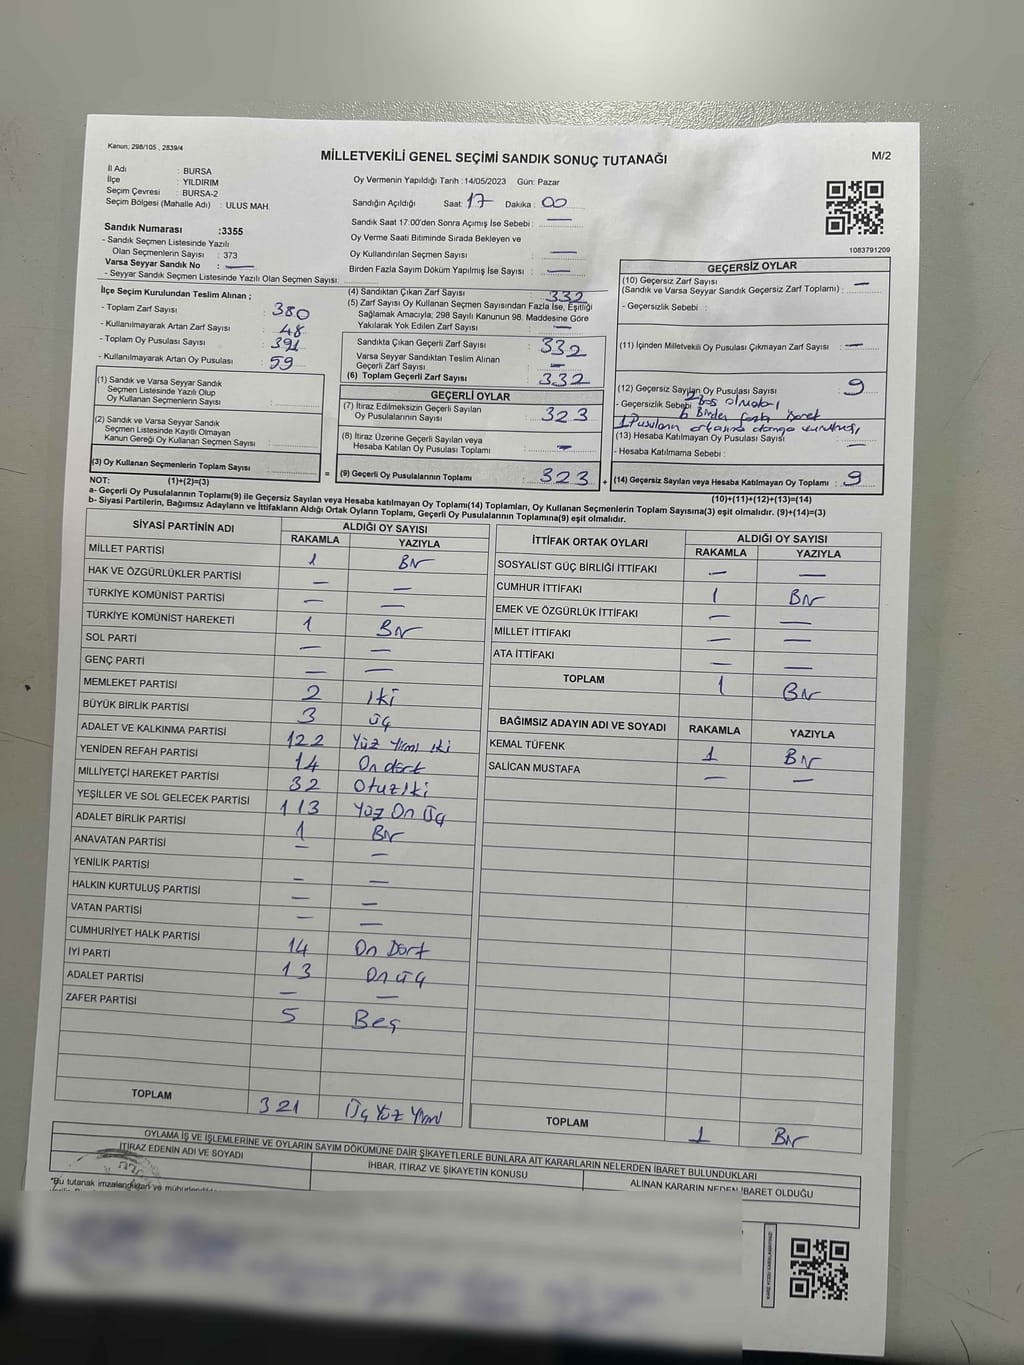 Kanun; 298/105 , 2839/4
MİLLETVEKİLİ GENEL SEÇİMİ SANDIK SONUÇ TUTANAĞI
M/2
İl Adı : BURSA
İlçe : YILDIRIM
Seçim Çevresi : BURSA-2
Seçim Bölgesi (Mahalle Adı) : ULUS MAH.
Sandık Numarası :3355
- Sandık Seçmen Listesinde Yazılı
Olan Seçmenlerin Sayısı : 373
Varsa Seyyar Sandık No : —
- Seyyar Sandık Seçmen Listesinde Yazılı Olan Seçmen Sayısı:
Oy Vermenin Yapıldığı Tarih :14/05/2023 Gün: Pazar
Sandığın Açıldığı Saat: 17 Dakika : 00
Sandık Saat 17:00'den Sonra Açımış İse Sebebi : —
Oy Verme Saati Bitiminde Sırada Bekleyen ve
Oy Kullandırılan Seçmen Sayısı : —
Birden Fazla Sayım Döküm Yapılmış İse Sayısı : —
1083791209
İlçe Seçim Kurulundan Teslim Alınan ;
- Toplam Zarf Sayısı : 380
- Kullanılmayarak Artan Zarf Sayısı : 48
- Toplam Oy Pusulası Sayısı : 391
- Kullanılmayarak Artan Oy Pusulası : 59
(1) Sandık ve Varsa Seyyar Sandık
Seçmen Listesinde Yazılı Olup
Oy Kullanan Seçmenlerin Sayısı :
(2) Sandık ve Varsa Seyyar Sandık
Seçmen Listesinde Kayıtlı Olmayan
Kanun Gereği Oy Kullanan Seçmen Sayısı :
(3) Oy Kullanan Seçmenlerin Toplam Sayısı :
(4) Sandıktan Çıkan Zarf Sayısı : 332
(5) Zarf Sayısı Oy Kullanan Seçmen Sayısından Fazla İse, Eşitliği
Sağlamak Amacıyla; 298 Sayılı Kanunun 98. Maddesine Göre
Yakılarak Yok Edilen Zarf Sayısı : —
Sandıkta Çıkan Geçerli Zarf Sayısı : 332
Varsa Seyyar Sandıktan Teslim Alınan
Geçerli Zarf Sayısı : —
(6) Toplam Geçerli Zarf Sayısı : 332
GEÇERLİ OYLAR
(7) İtiraz Edilmeksizin Geçerli Sayılan
Oy Pusulalarının Sayısı : 323
(8) İtiraz Üzerine Geçerli Sayılan veya
Hesaba Katılan Oy Pusulası Toplamı : —
= (9) Geçerli Oy Pusulalarının Toplamı : 323 +
GEÇERSİZ OYLAR
(10) Geçersiz Zarf Sayısı
(Sandık ve Varsa Seyyar Sandık Geçersiz Zarf Toplamı) : —
- Geçersizlik Sebebi :
(11) İçinden Milletvekili Oy Pusulası Çıkmayan Zarf Sayısı : —
(12) Geçersiz Sayılan Oy Pusulası Sayısı : 9
- Geçersizlik Sebebi
Birden fazla
(13) Hesaba Katılmayan Oy Pusulası Sayısı : —
- Hesaba Katılmama Sebebi :
(14) Geçersiz Sayılan veya Hesaba Katılmayan Oy Toplamı : 9
NOT: (1)+(2)=(3)
(10)+(11)+(12)+(13)=(14)
a- Geçerli Oy Pusulalarının Toplamı(9) ile Geçersiz Sayılan veya Hesaba katılmayan Oy Toplamı(14) Toplamları, Oy Kullanan Seçmenlerin Toplam Sayısına(3) eşit olmalıdır. (9)+(14)=(3)
b- Siyasi Partilerin, Bağımsız Adayların ve İttifakların Aldığı Ortak Oyların Toplamı, Geçerli Oy Pusulalarının Toplamına(9) eşit olmalıdır.
SİYASİ PARTİNİN ADI ALDIĞI OY SAYISI
RAKAMLA YAZIYLA
MİLLET PARTİSİ 1 Bir
HAK VE ÖZGÜRLÜKLER PARTİSİ — —
TÜRKİYE KOMÜNİST PARTİSİ — —
TÜRKİYE KOMÜNİST HAREKETİ 1 Bir
SOL PARTİ — —
GENÇ PARTİ — —
MEMLEKET PARTİSİ 2 İki
BÜYÜK BİRLİK PARTİSİ 3 üç
ADALET VE KALKINMA PARTİSİ 122 Yüz Yirmi iki
YENİDEN REFAH PARTİSİ 14 On dört
MİLLİYETÇİ HAREKET PARTİSİ 32 Otuz İki
YEŞİLLER VE SOL GELECEK PARTİSİ 113 Yüz On Üç
ADALET BİRLİK PARTİSİ 1 Bir
ANAVATAN PARTİSİ — —
YENİLİK PARTİSİ — —
HALKIN KURTULUŞ PARTİSİ — —
VATAN PARTİSİ — —
CUMHURİYET HALK PARTİSİ 14 On Dört
İYİ PARTİ 13 On üç
ADALET PARTİSİ — —
ZAFER PARTİSİ 5 Beş
TOPLAM 321 Üç Yüz Yirmi
İTTİFAK ORTAK OYLARI ALDIĞI OY SAYISI
RAKAMLA YAZIYLA
SOSYALİST GÜÇ BİRLİĞİ İTTİFAKI — —
CUMHUR İTTİFAKI 1 Bir
EMEK VE ÖZGÜRLÜK İTTİFAKI — —
MİLLET İTTİFAKI — —
ATA İTTİFAKI — —
TOPLAM 1 Bir
BAĞIMSIZ ADAYIN ADI VE SOYADI RAKAMLA YAZIYLA
KEMAL TÜFENK 1 Bir
SALİCAN MUSTAFA — —
TOPLAM 1 Bir
OYLAMA İŞ VE İŞLEMLERİNE VE OYLARIN SAYIM DÖKÜMÜNE DAİR ŞİKAYETLERLE BUNLARA AİT KARARLARIN NELERDEN İBARET BULUNDUKLARI
İTİRAZ EDENİN ADI VE SOYADI
İHBAR, İTİRAZ VE ŞİKAYETİN KONUSU
ALINAN KARARIN NEDEN İBARET OLDUĞU
"Bu tutanak imzalandıktan ve